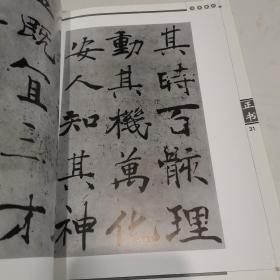 其時百骸理
動其機萬化
安人知其神
既宜三才
正书
31